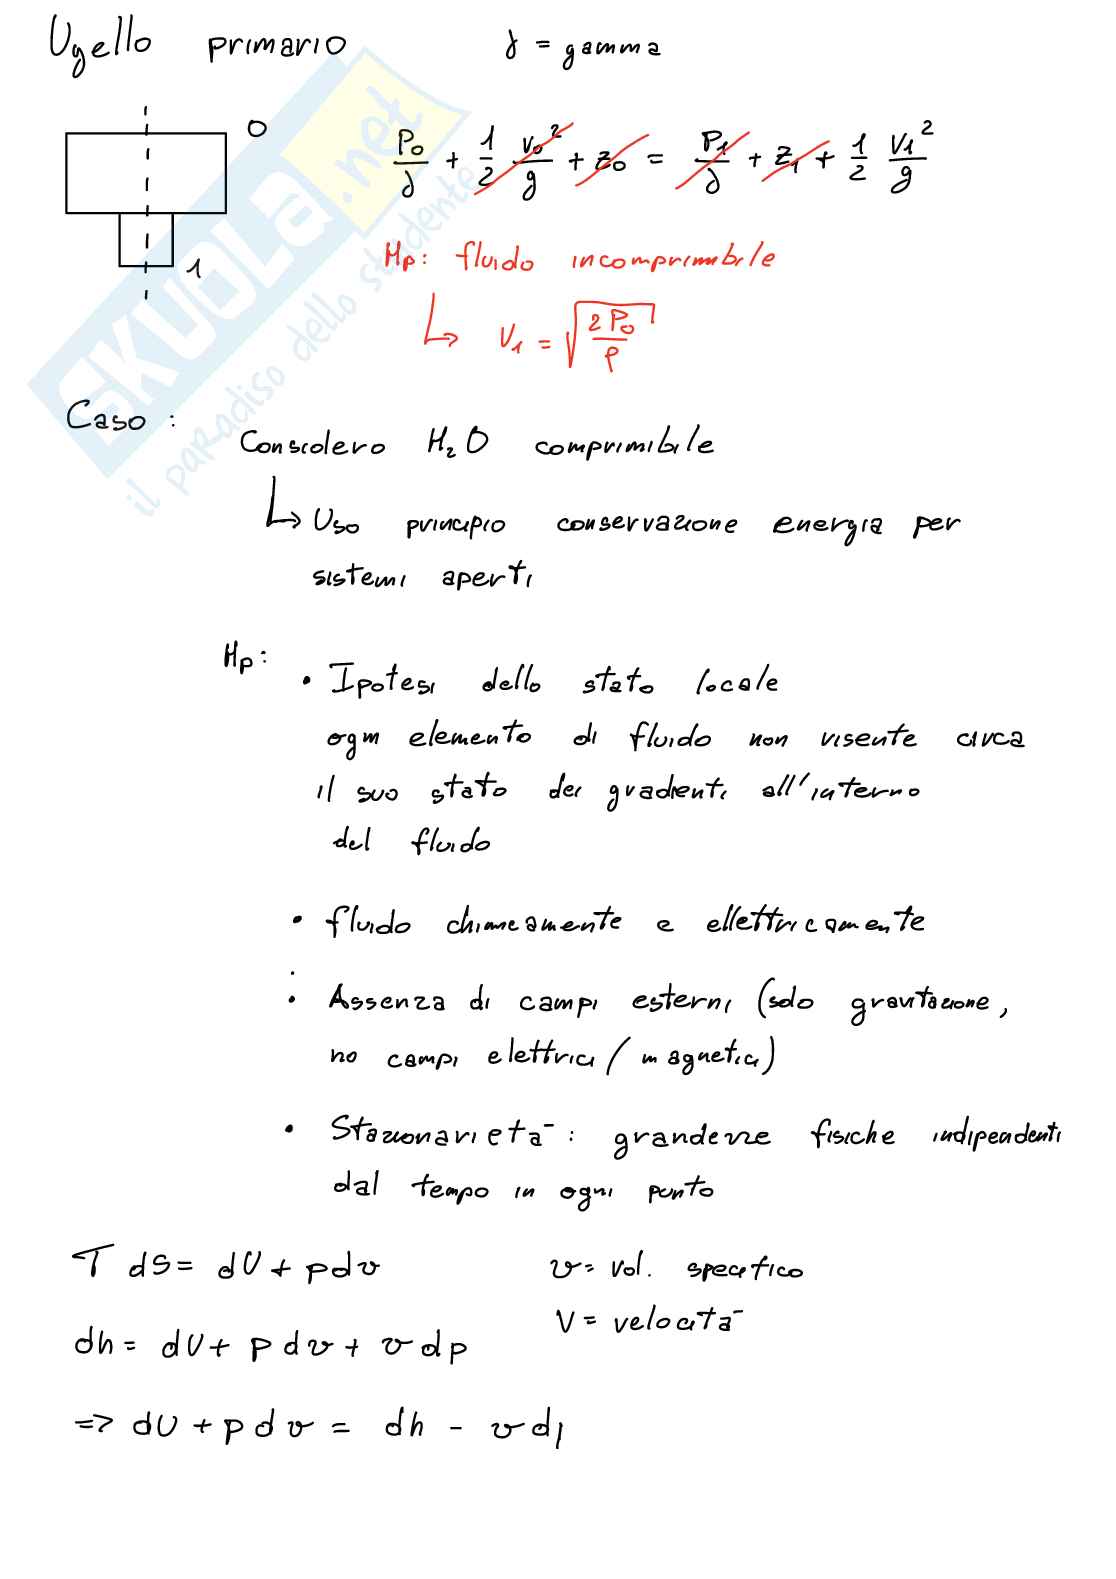 Ugello primario γ = gamma
0
P₀/γ + 1/2 v₀²/g + z₀ = P₁/γ + z₁ + 1/2 V₁²/g
1
Hp: fluido incomprimibile
↳ V₁ = √(2 P₀/ρ)
Caso :
Considero H₂O comprimibile
↳ Uso principio conservazione energia per
sistemi aperti
Hp:
• Ipotesi dello stato locale
ogni elemento di fluido non risente circa
il suo stato dei gradienti all'interno
del fluido
• fluido chimicamente e ellettricamente
• Assenza di campi esterni (solo gravitazione,
no campi elettrici / magnetici)
• Stazionarietà : grandezze fisiche indipendenti
dal tempo in ogni punto
T dS = dU + p dv v = vol. specifico
V = velocità
dh = dU + p dv + v dp
=> dU + p dv = dh - v dp
SKUOLA.net
il paradiso dello studente